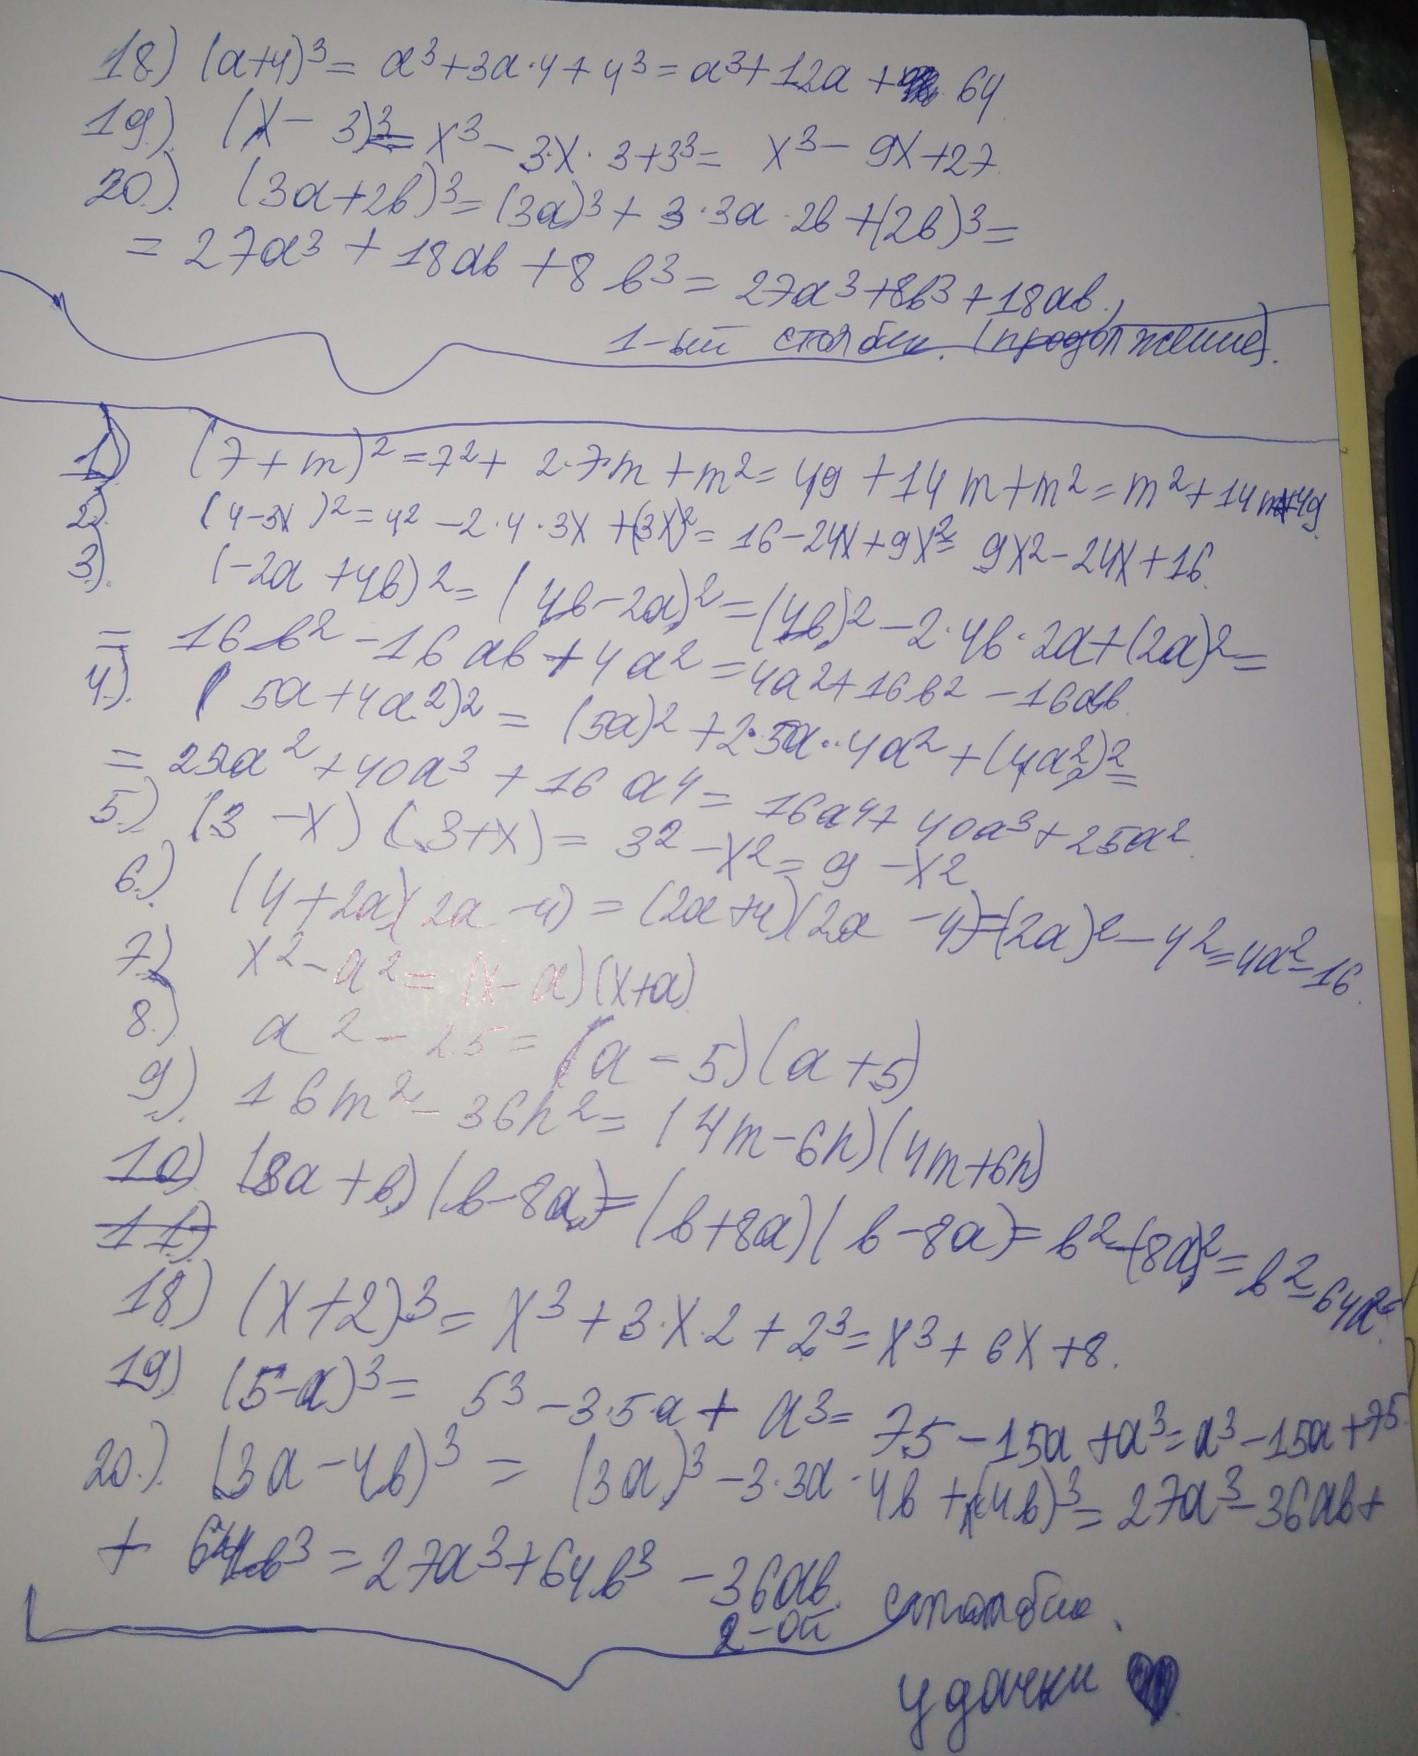 18.) (a+4)³ = a³+3a·4+4³ = a³+12a+ 64
19.) (x - 3)³ = x³ - 3·x·3+3³ = x³ - 9x+27
20.) (3a+2b)³ = (3a)³ + 3·3a·2b+(2b)³ =
= 27a³ + 18ab + 8b³ = 27a³+8b³+18ab.
1-ый столбик. (продолжение).
1) (7+m)² = 7² + 2·7·m + m² = 49 + 14m+m² = m²+14m+49
2) (4-3x)² = 4² - 2·4·3x + (3x)² = 16-24x+9x² = 9x²-24x+16.
3). (-2a+4b)² = (4b-2a)² = (4b)² - 2·4b·2a+(2a)² =
= 16b² - 16ab + 4a² = 4a²+16b² - 16ab
4). (5a+4a²)² = (5a)² + 2·5a·4a² + (4a²)² =
= 25a² + 40a³ + 16a⁴ = 16a⁴ + 40a³ + 25a².
5.) (3 - x)(3+x) = 3² - x² = 9 - x²
6.) (4+2a)(2a-4) = (2a+4)(2a-4) = (2a)² - 4² = 4a² - 16.
7.) x² - a² = (x-a)(x+a)
8.) a² - 25 = (a - 5)(a+5)
9.) 16m² - 36n² = (4m-6n)(4m+6n)
10) (8a+b)(b-8a) = (b+8a)(b-8a) = b² - (8a)² = b² - 64a²
11)
18.) (x+2)³ = x³ + 3·x·2 + 2³ = x³ + 6x + 8.
19) (5-a)³ = 5³ - 3·5·a + a³ = 75 - 15a + a³ = a³ - 15a + 75
20.) (3a-4b)³ = (3a)³ - 3·3a·4b + (4b)³ = 27a³ - 36ab +
+ 64b³ = 27a³ + 64b³ - 36ab.
2-ой столбик.
удачки